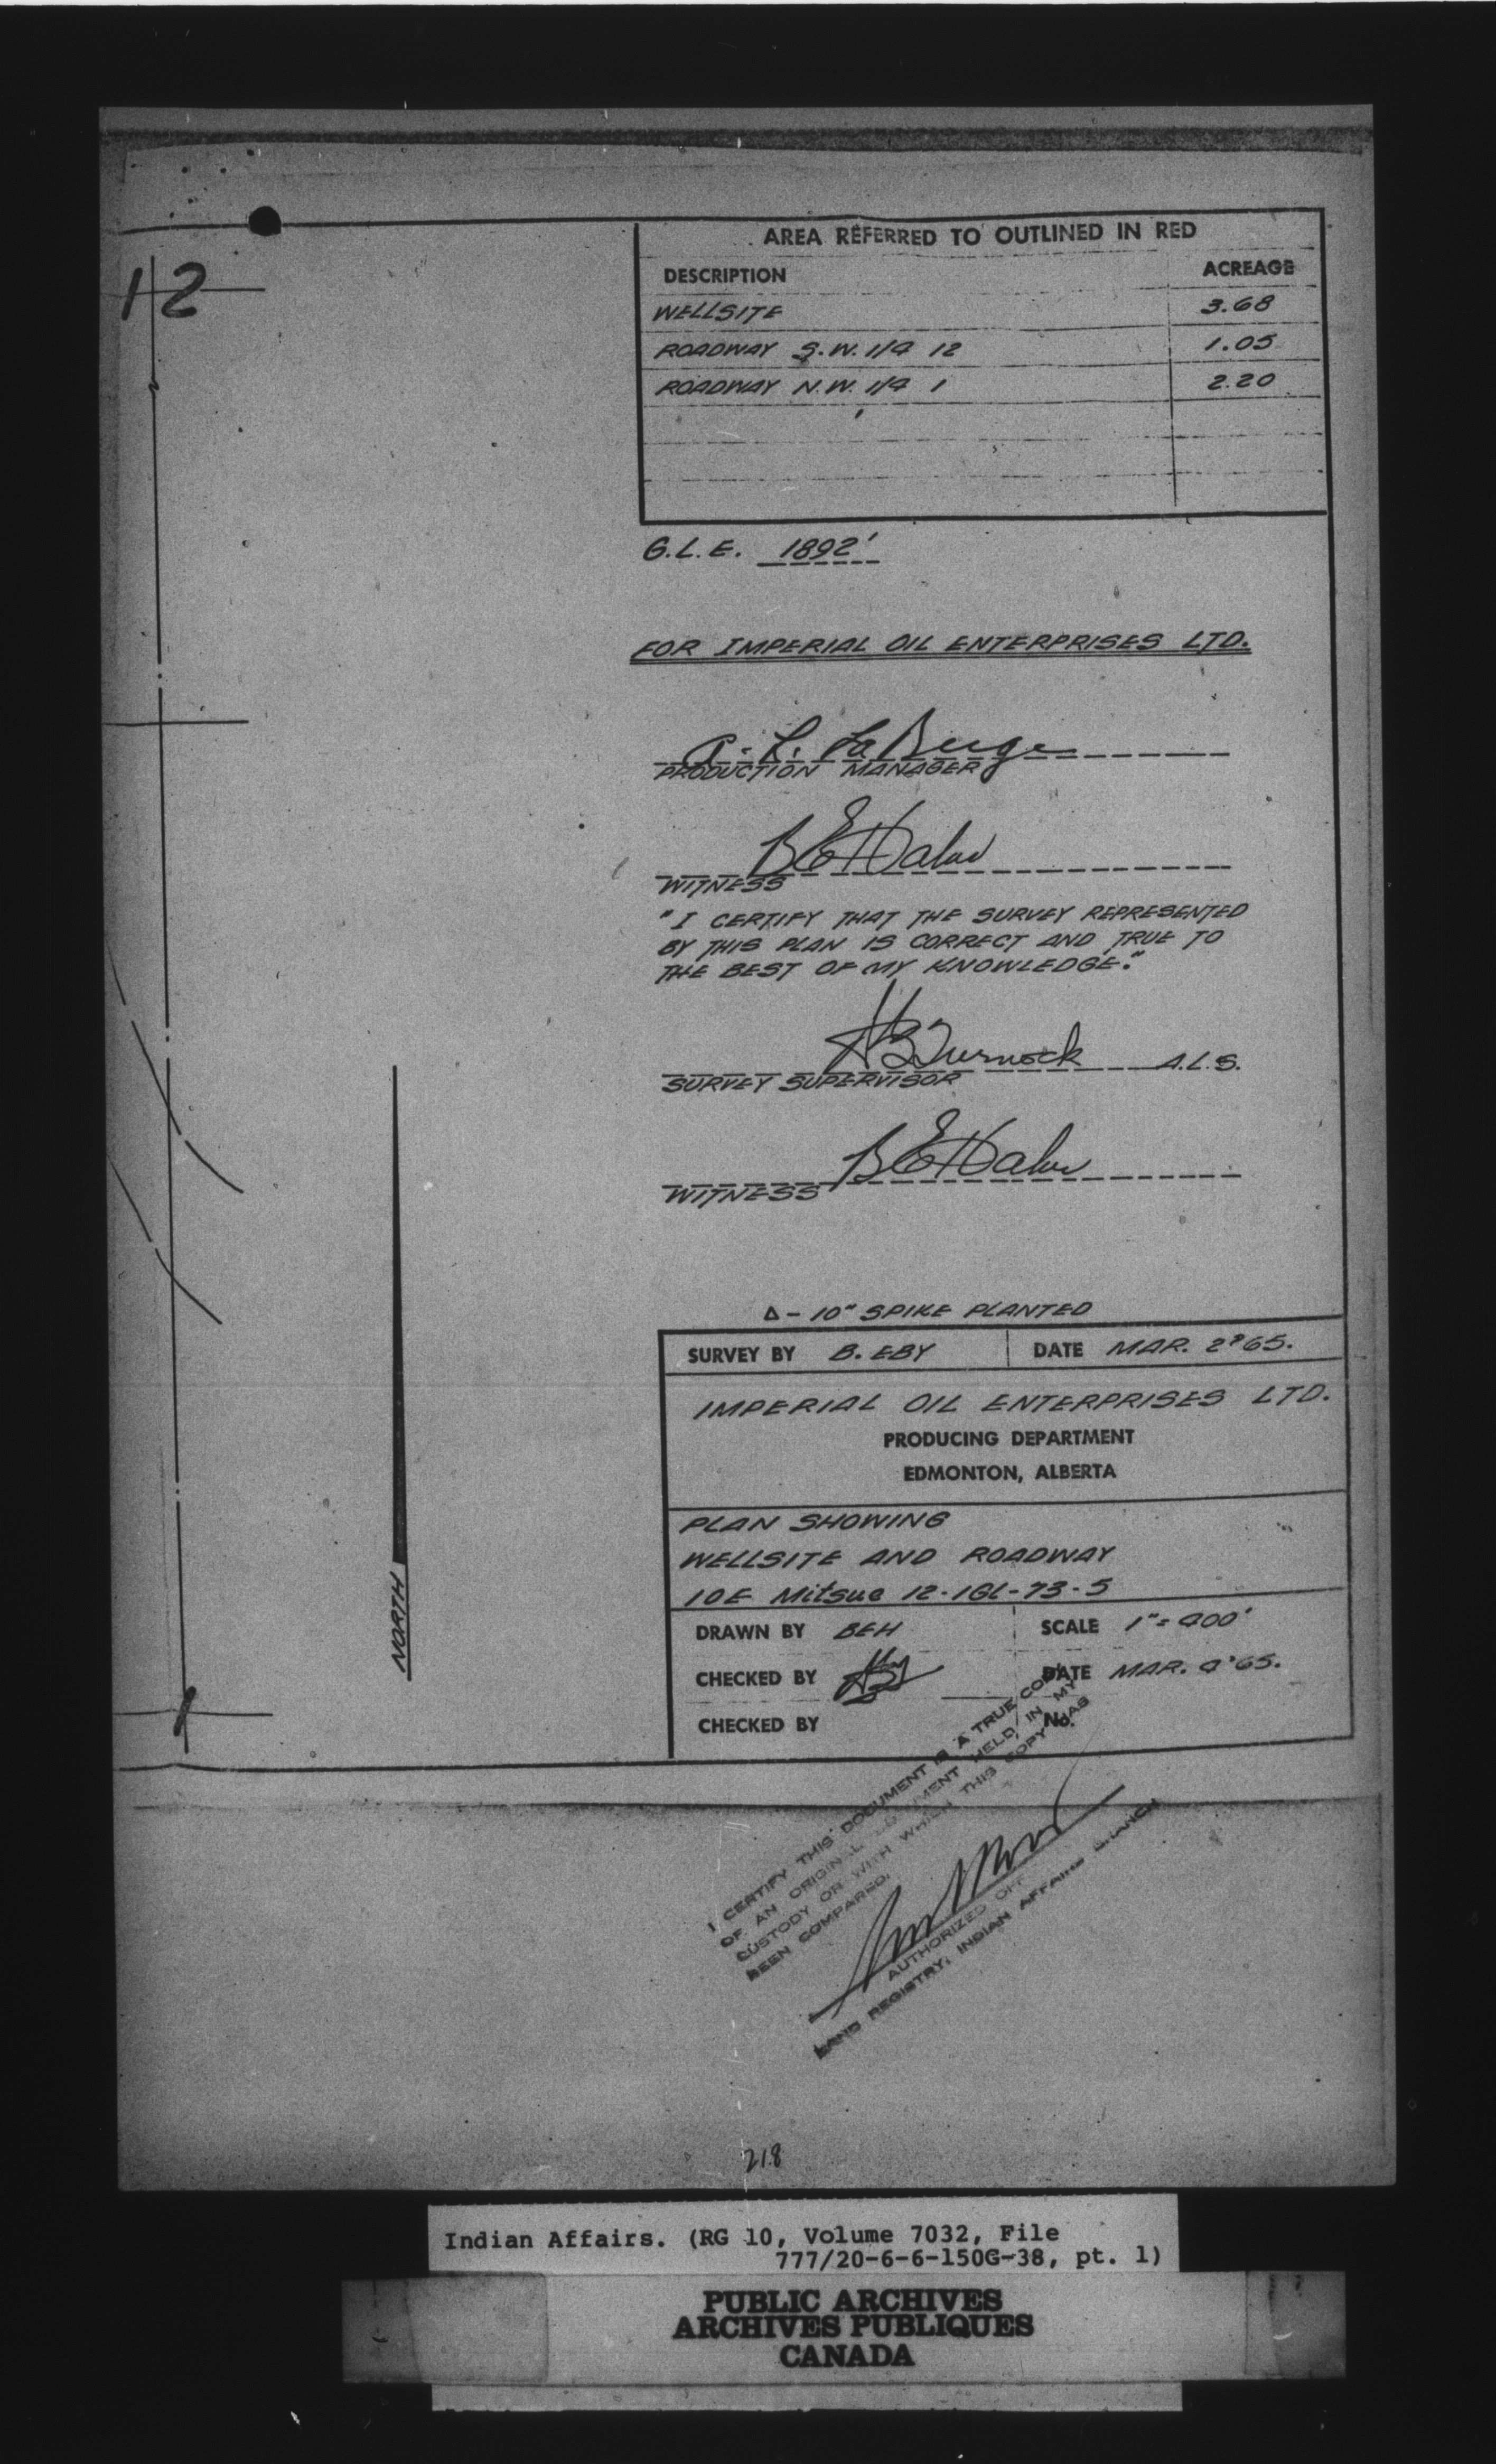 12
AREA REFERRED TO OUTLINED IN RED
DESCRIPTION ACREAGE
WELLSITE 3.68
ROADWAY S.W. 1/4 12 1.05
ROADWAY N.W. 1/4 1 2.20
G.L.E. 1892'
FOR IMPERIAL OIL ENTERPRISES LTD.
La Berge
PRODUCTION MANAGER
B E
WITNESS
"I CERTIFY THAT THE SURVEY REPRESENTED
BY THIS PLAN IS CORRECT AND TRUE TO
THE BEST OF MY KNOWLEDGE."
H B Turnock A.L.S.
SURVEY SUPERVISOR
B E
WITNESS
Δ - 10" SPIKE PLANTED
SURVEY BY B. EBY DATE MAR. 2 '65.
IMPERIAL OIL ENTERPRISES LTD.
PRODUCING DEPARTMENT
EDMONTON, ALBERTA
PLAN SHOWING
WELLSITE AND ROADWAY
IOE Mitsue 12-1GL-73-5
DRAWN BY BEH SCALE 1" = 400'
CHECKED BY DATE MAR. 4 '65.
CHECKED BY No.
NORTH
1
I CERTIFY THIS DOCUMENT IS A TRUE COPY
OF AN ORIGINAL DOCUMENT HELD IN MY
CUSTODY OR WITH WHICH THIS COPY HAS
BEEN COMPARED.
AUTHORIZED OFF
LAND REGISTRY, INDIAN AFFAIRS BRANCH
218
Indian Affairs. (RG 10, Volume 7032, File
777/20-6-6-150G-38, pt. 1)
PUBLIC ARCHIVES
ARCHIVES PUBLIQUES
CANADA